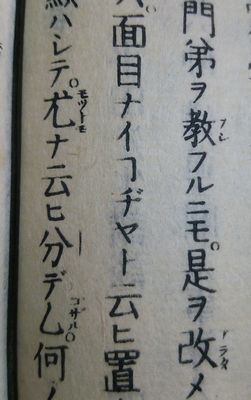 門弟ヲ教フルニモ是ヲ改メ
ハ面目ナイヿヂヤト云ヒ置
ハシテ尤ナ云ヒ分デ厶何